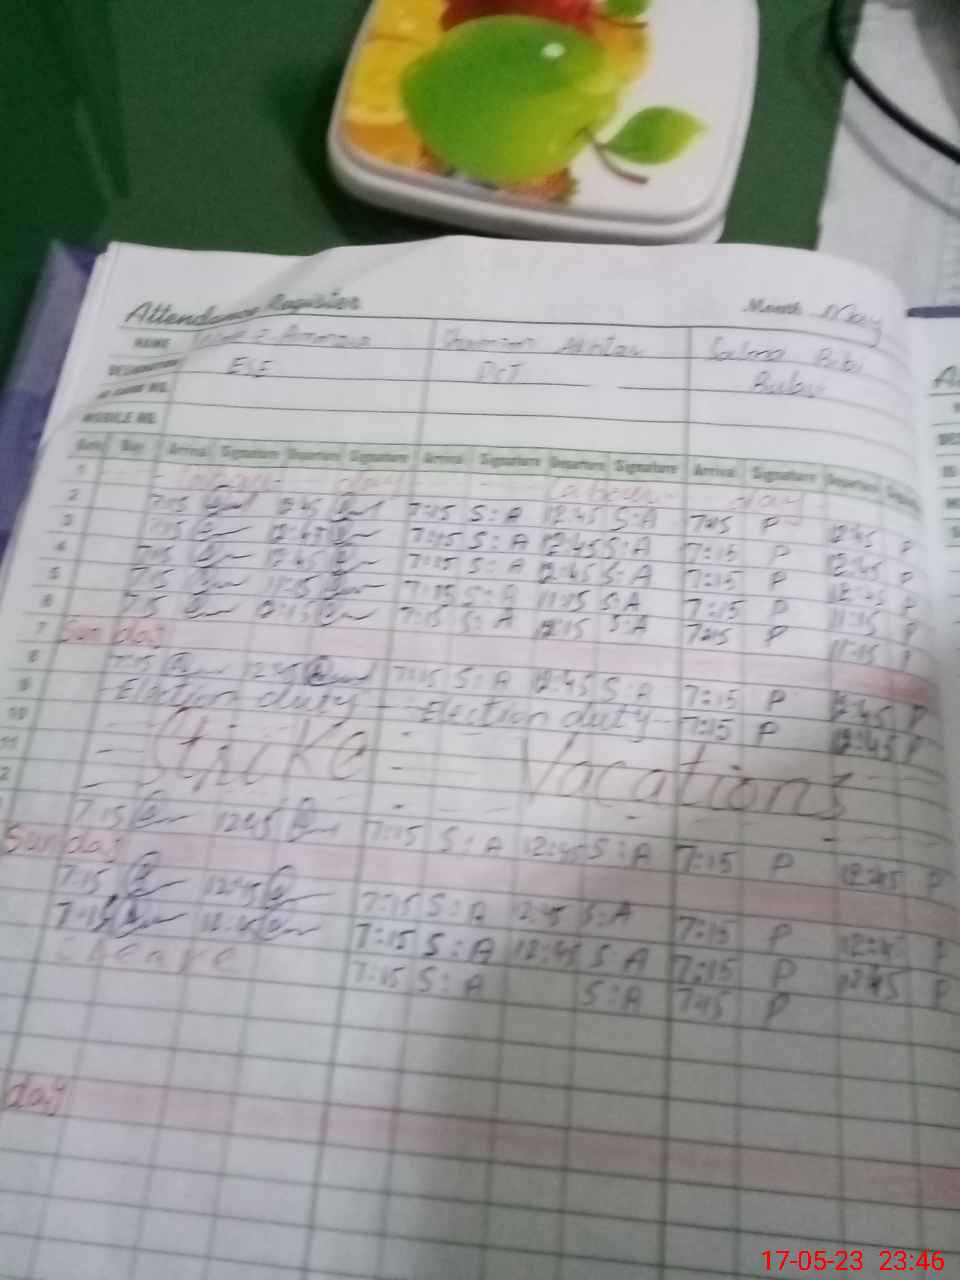 Attendance Register Month May
NAME Akhtar Salma Bibi
DESIGNATION ESE DCT
MOBILE NO.
Date Day Arrival Signature Departure Signature Arrival Signature Departure Signature Arrival Signature Departure
1 day Labour day
2 7:15 12:45 7:15 S:A 12:45 S:A 7:15 P 12:45 P
3 7:15 12:45 7:15 S:A 12:45 S:A 7:15 P 12:45 P
4 7:15 12:45 7:15 S:A 12:45 S:A 7:15 P 12:45 P
5 7:15 11:15 7:15 S:A 11:15 S:A 7:15 P 11:15 P
6 7:15 12:15 7:15 S:A S:A 7:15 P 11:15 P
7 Sunday
8 7:15 12:45 7:15 S:A 12:45 S:A 7:15 P 12:45 P
9 Election duty Election duty 7:15 P 12:45 P
10 Strike Vacations
11
2
7:15 12:45 7:15 S:A 12:45 S:A 7:15 P 12:45 P
Sunday
7:15 12:45 7:15 S:A 12:45 S:A 7:15 P 12:45 P
7:15 7:15 S:A 12:45 S:A 7:15 P 12:45 P
Leave 7:15 S:A S:A 7:15 P
day
17-05-23 23:46